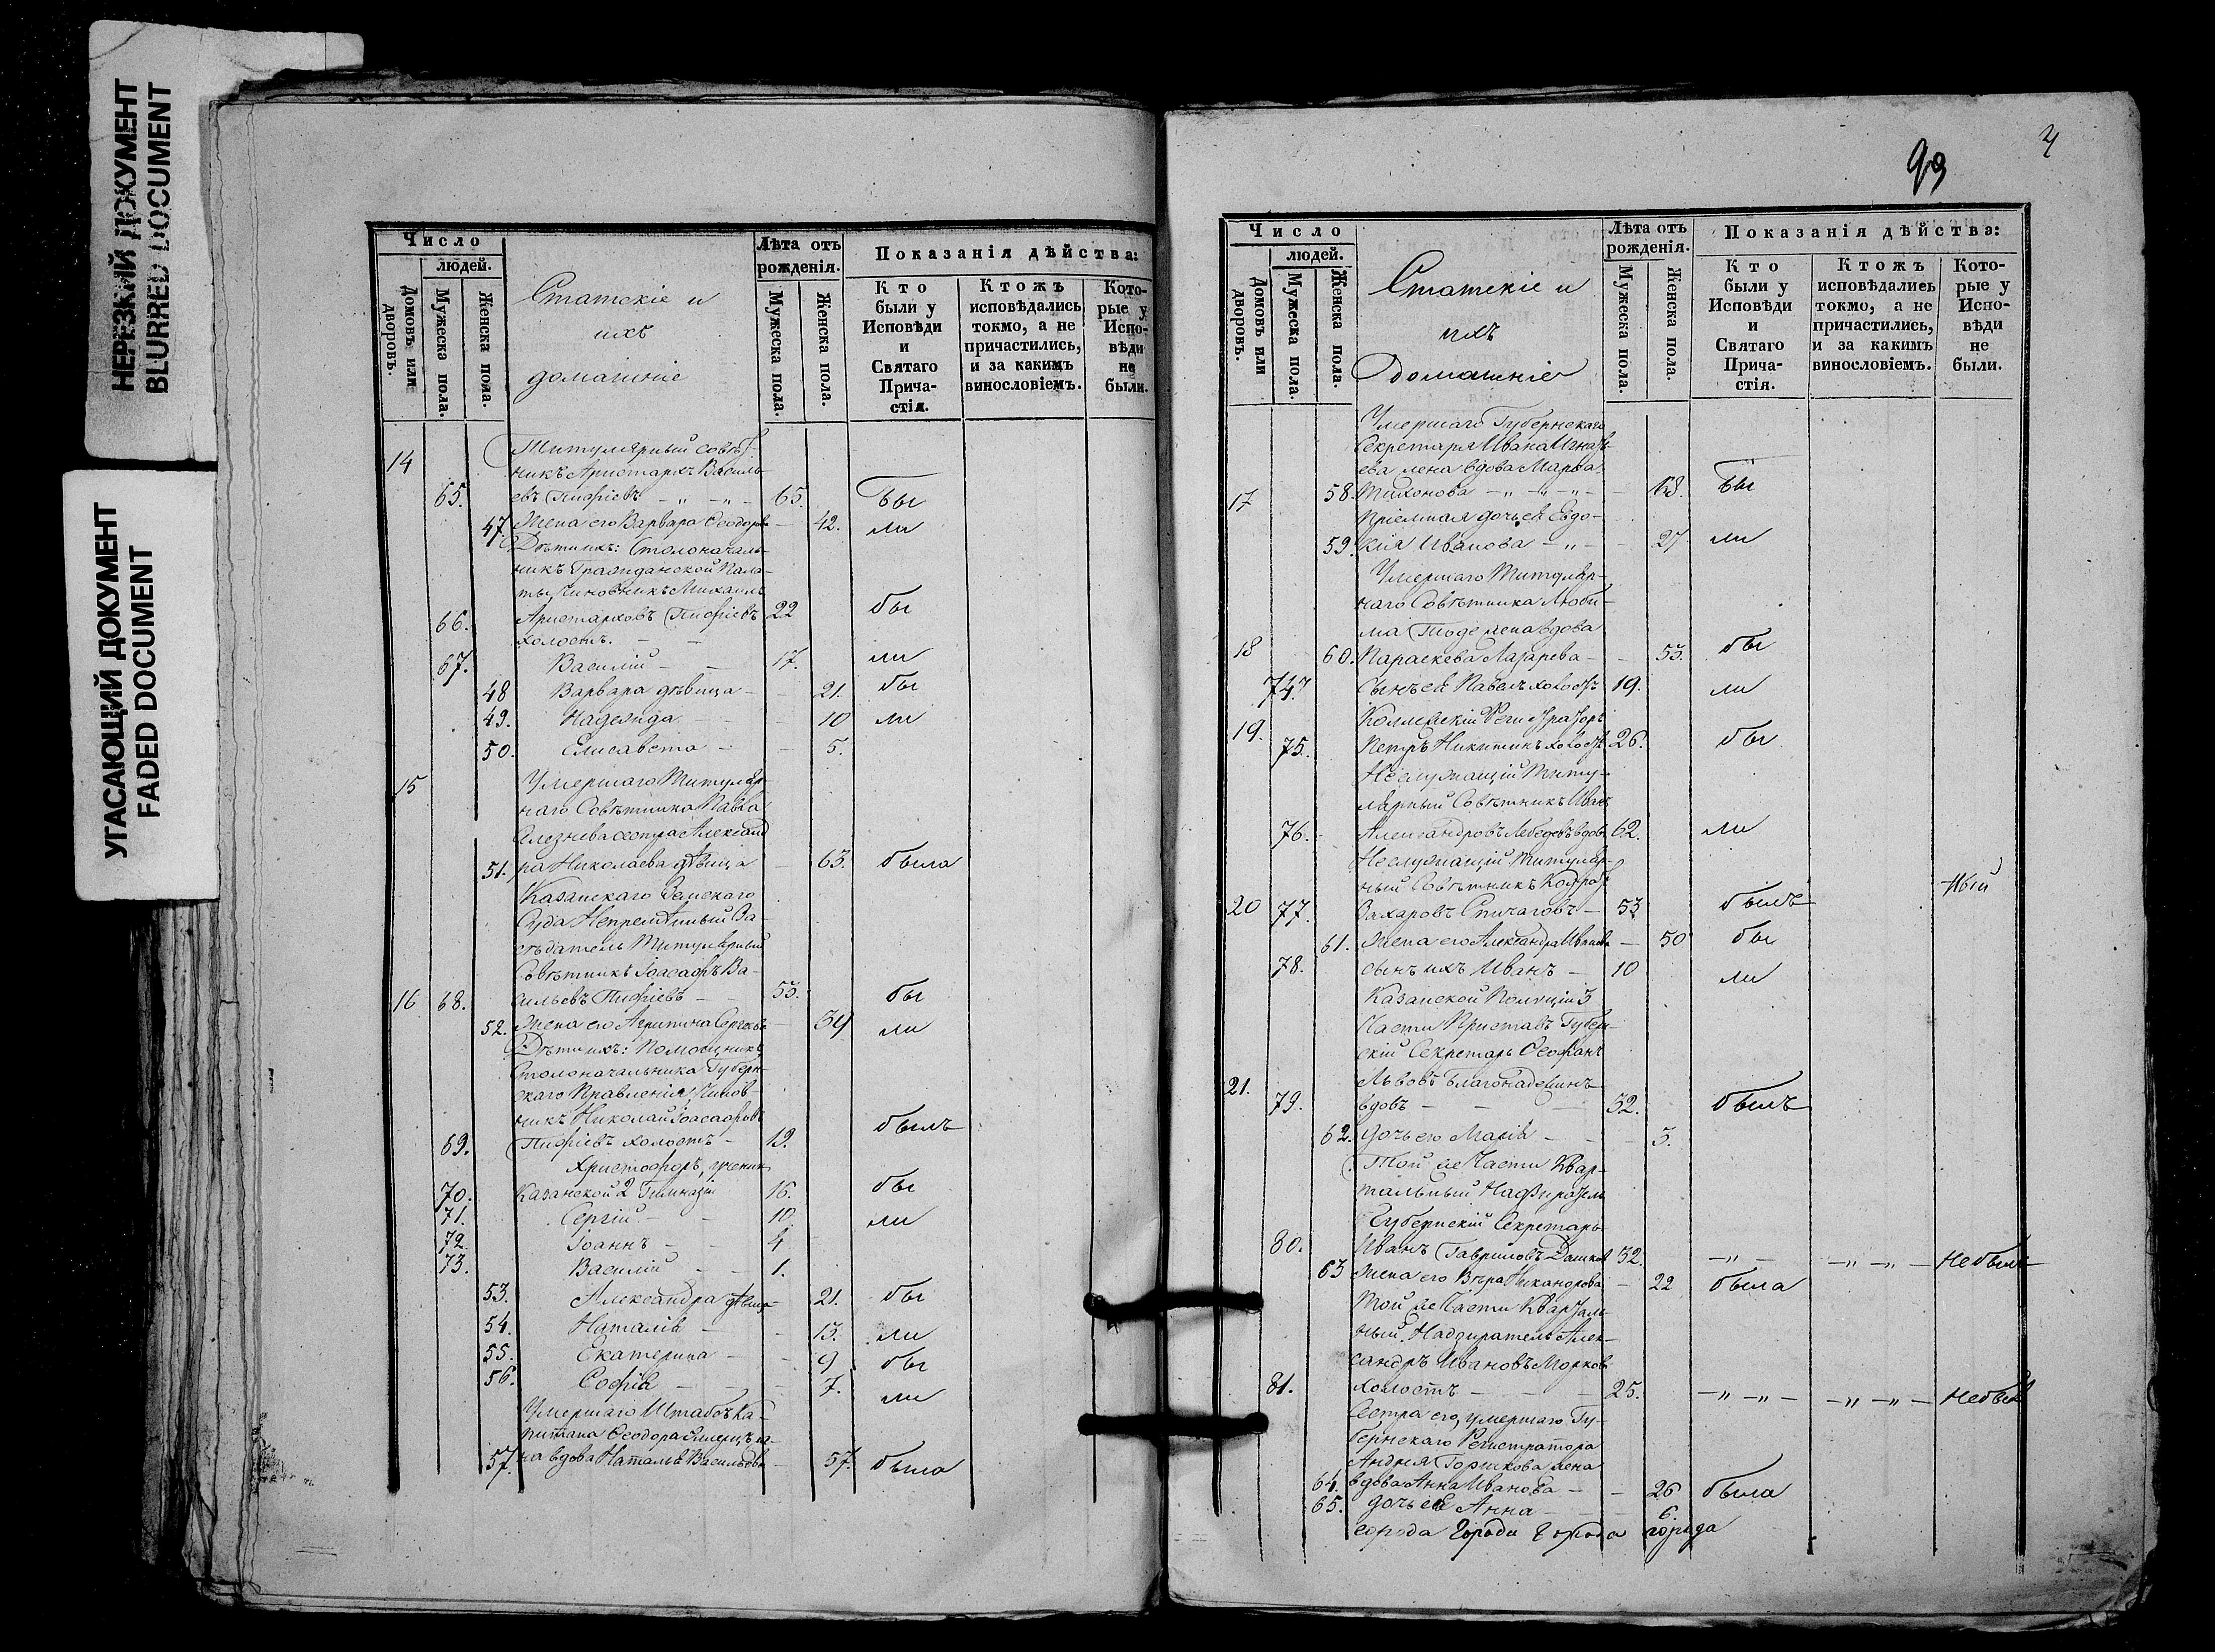 НЕРЕЗКИЙ ДОКУМЕНТ
BLURRED DOCUMENT
УГАСАЮЩИЙ ДОКУМЕНТ
FADED DOCUMENT
Число
людей.
Домовъ или дворовъ.
Мужеска пола.
Женска пола.
Статскіе и
ихъ
домашніе
Лѣта отъ рожденія.
Мужеска пола.
Женска пола.
Показанія дѣйства:
Кто были у Исповѣди и Святаго Прича-стія.
Ктожъ исповѣдались токмо, а не причастились, и за какимъ винословіемъ.
Кото-рые у Испо-вѣди не были.
14 Титулярный Совѣт-
никъ Аристархъ Василь-
65. евъ Пифіевъ — „ — „ — 65. бы
47. Жена его Варвара Ѳеодорова — 42. ли
Дѣти ихъ: Столоначаль-
никъ Гражданской Пала-
ты Чиновникъ Михаилъ
66. Аристарховъ Пифіевъ 22 бы
холостъ. — —
67. Василій — — 17. ли
48 Варвара дѣвица — — 21. бы
49. Надежда — — 10 ли
50. Елисавета — — 5.
15 Умершаго Титуляр-
наго Совѣтника Павла
сестра Александ
51. ра Николаева дѣвица — 63. была
Казанскаго Земскаго
Суда Непремѣнный За-
сѣдатель Титулярный
Совѣтникъ Іоасафъ Ва-
16 68. сильевъ Пифіевъ — — 53. бы
52. Жена его Агрипина Сергеева — 39 ли
Дѣти ихъ: Помощникъ
Столоначальника Губерн-
скаго Правленія, Чинов-
никъ Николай Іоасафовъ
69. Пифіевъ холостъ — 19. былъ
Христофоръ, ученик
70. Казанской 2 Гимназіи 16. бы
71. Сергій — — 10. ли
72. Іоаннъ — — 4
73. Василій — — 1.
53. Александра дѣвица — 21. бы
54. Наталія — — 13. ли
55. Екатерина — — 9 бы
56. Софія — — — 7. ли
Умершаго Штабсъ Ка-
питана Ѳеодора
57. на вдова Наталья Васильева — 57. была
99
4
Число
людей.
Домовъ или дворовъ.
Мужеска пола.
Женска пола.
Статскіе и
ихъ
Домашніе
Лѣта отъ рожденія.
Мужеска пола.
Женска пола.
Показанія дѣйства:
Кто были у Исповѣди и Святаго Прича-стія.
Ктожъ исповѣдались токмо, а не причастились, и за какимъ винословіемъ.
Кото-рые у Испо-вѣди не были.
Умершаго Губернскаго
Секретаря Ивана Игнать-
ева жена вдова Марѳа
17 58. Тихонова — „ — „ — „ — 68. бы
Пріемная дочь ея Евдо-
59. кія Иванова — „ — 27 ли
Умершаго Титуляр-
наго Совѣтника Люби-
ма жена вдова
18 60. Параскева Лазарева — — 53. бы
74. Сынъ ея Павелъ холостъ 19. ли
Коллежскій Регистраторъ
19. 75. Петръ Никитинъ холостъ 26. бы
Неслужащій Титу-
лярный Совѣтникъ Иванъ
76. Александровъ Лебедевъ вдовъ 62. ли
Неслужащій Титуляр-
ный Совѣтникъ Кодратъ
20 77. Захаровъ Спичаговъ — 53 былъ
61. Жена его Александра Иванова — 50 бы
78. сынъ ихъ Иванъ — 10 ли
Казанской Полиціи 3
Части Приставъ Губерн-
скій Секретарь Ѳеофанъ
21. Львовъ Благонадеждинъ
79. вдовъ — — — 32. былъ
62. дочь его Марія — — — 5.
Той же Части Квар-
тальный Надзиратель
Губернскій Секретарь
80. Иванъ Гавриловъ Дашков 32. — „ — — „ — „ — Не былъ
63 Жена его Вѣра Никандрова — 22 была
Той же Части Кварталь-
ный Надзиратель Алек-
сандръ Ивановъ Морков
81. холостъ — — — 25. — „ — „ — — „ — „ — Не былъ
Сестра его, умершаго Гу-
бернскаго Регистратора
Андрея Горшкова жена
64. вдова Анна Иванова — — 26 была
65. дочь ея Анна — — — 6.
города города города города